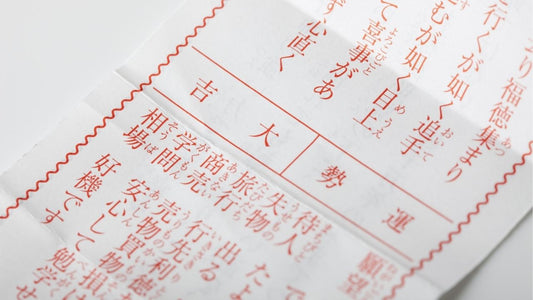 り福徳集まり
行くが如く追手
むが如く目上
て喜事があ
ず心直く
運勢
大吉
願望
待人 たよ
失物 出る
旅行 行先利
商売 売物買物損
学問 安心して勉学せ
相場 好機です